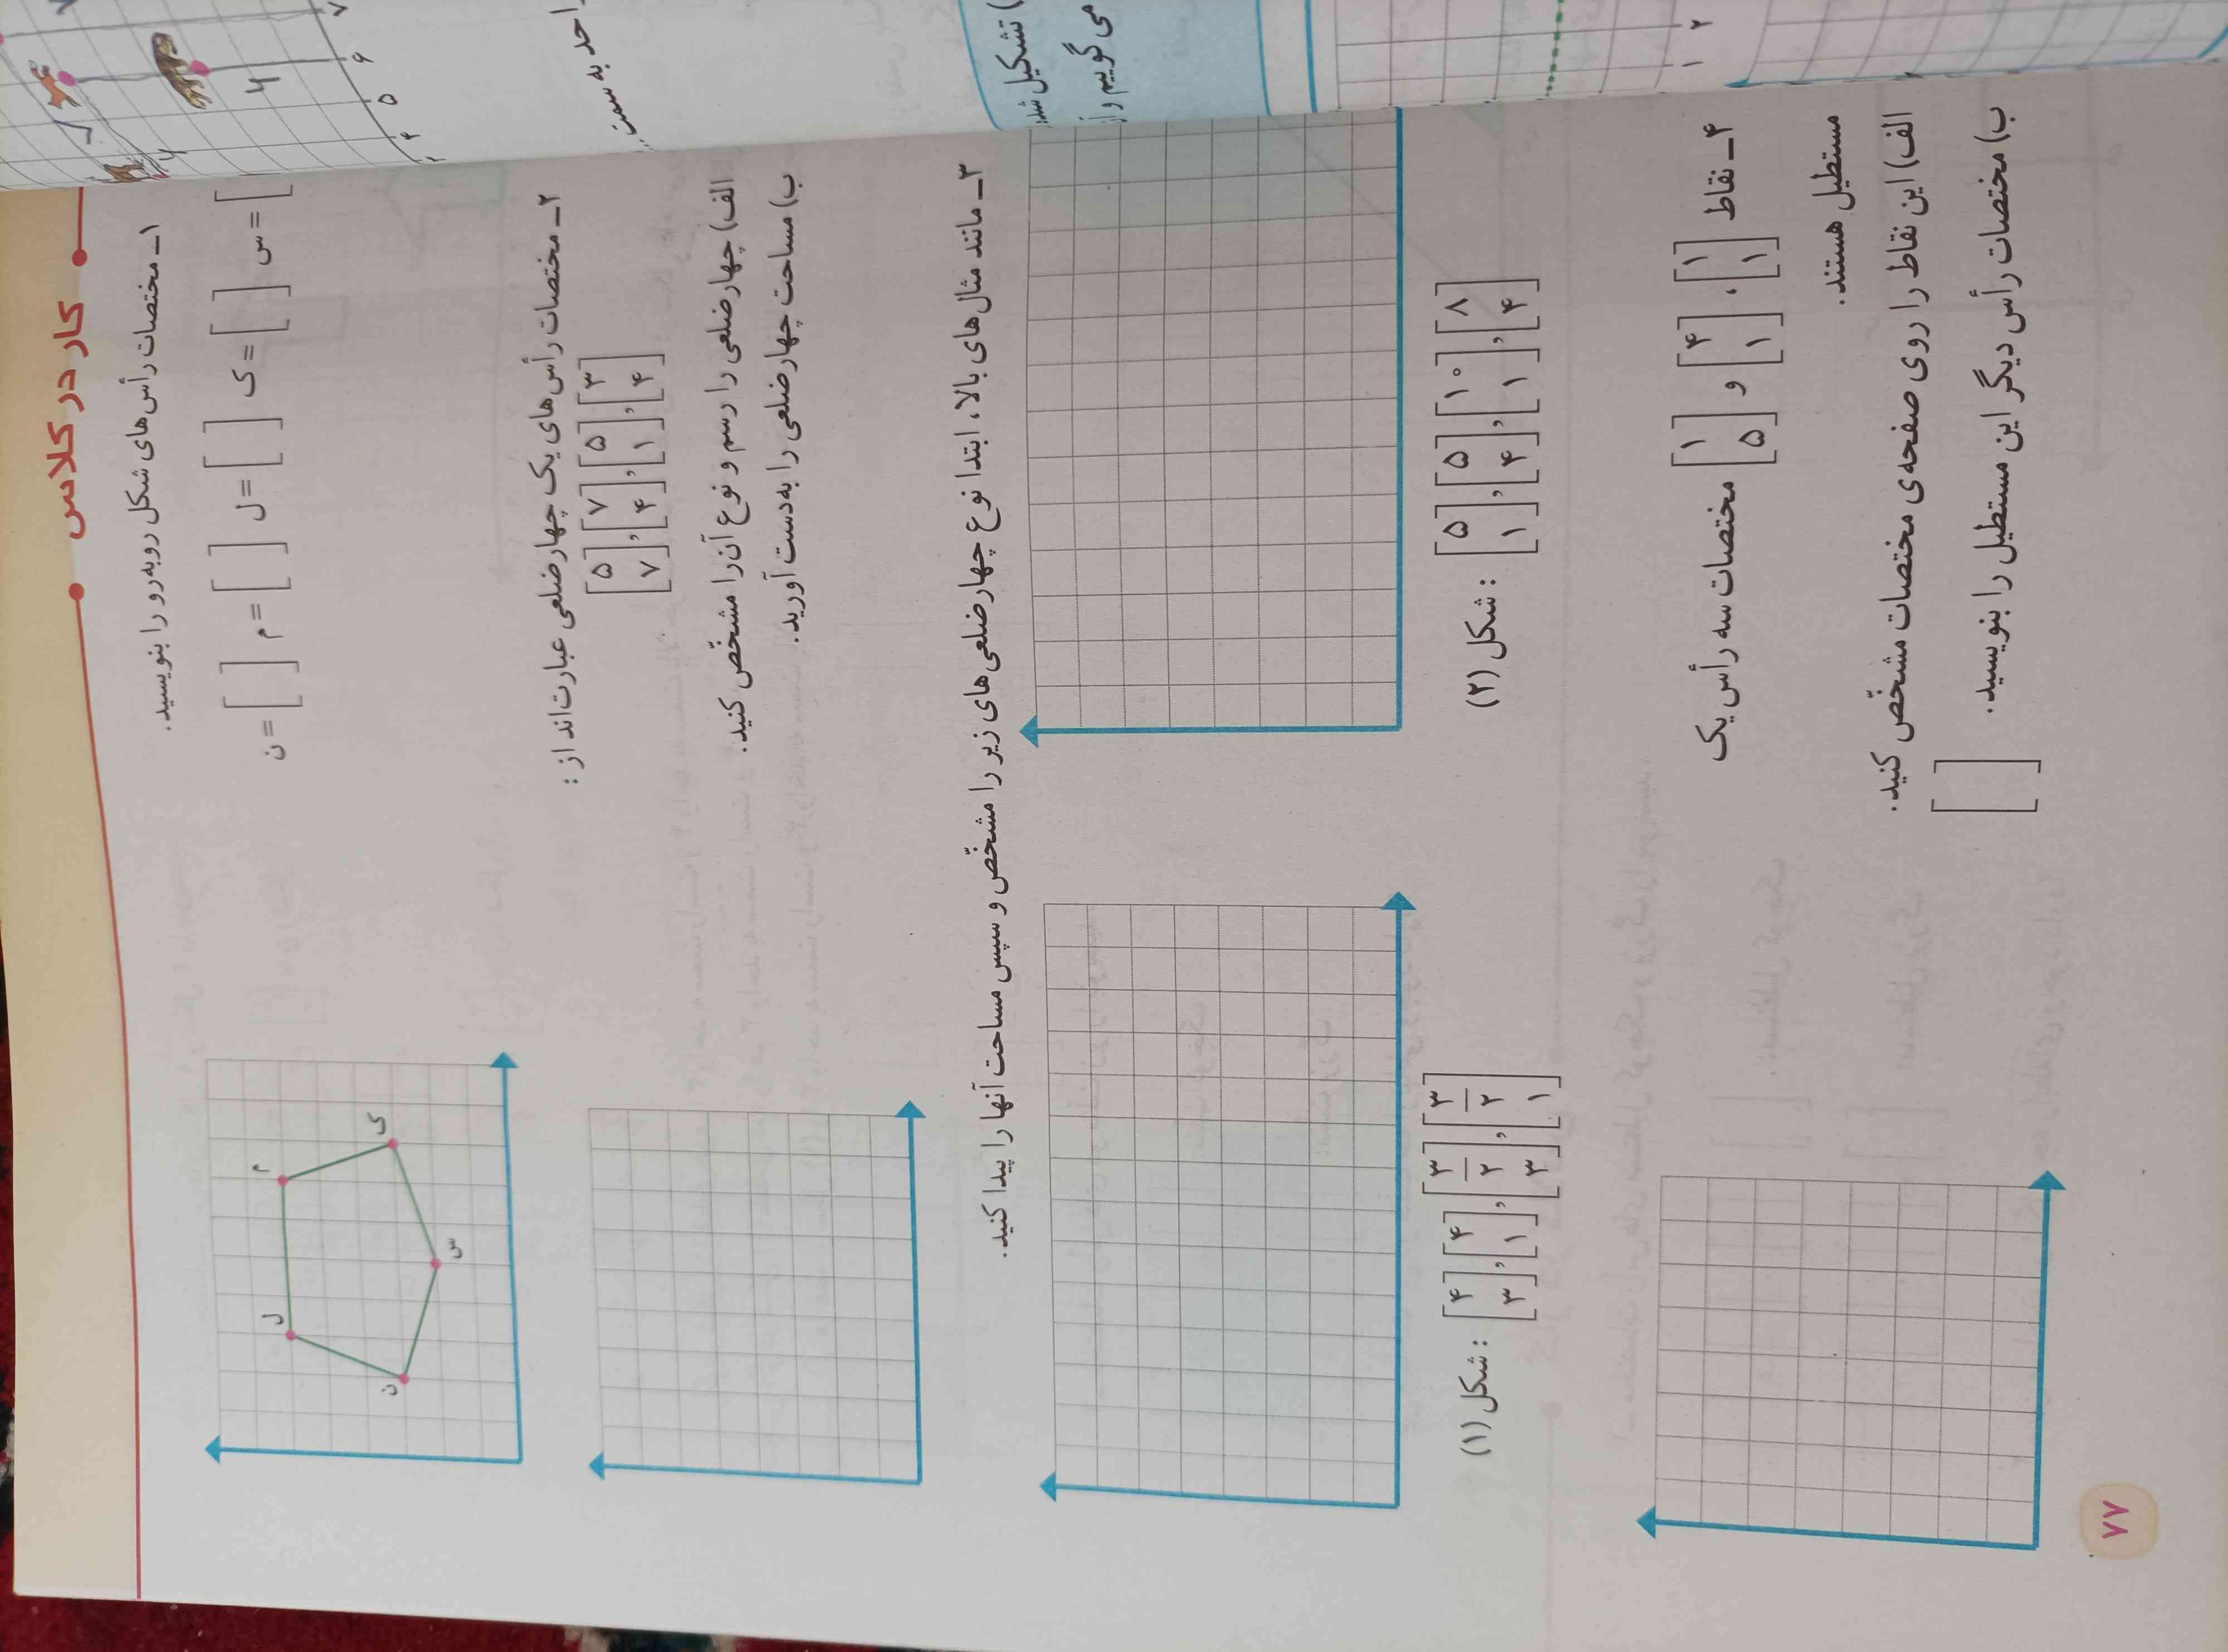 کار در کلاس
۱_ مختصات رأس‌های شکل روبه‌رو را بنویسید.
ن = [ ] م = [ ] ل = [ ] ک = [ ] س = [
م
ل
ک
س
ن
۲_ مختصات رأس‌های یک چهارضلعی عبارت‌اند از :
[۵ ۷] , [۷ ۴] , [۵ ۱] , [۳ ۴]
الف) چهارضلعی را رسم و نوع آن را مشخّص کنید.
ب) مساحت چهارضلعی را به‌دست آورید.
۳_ مانند مثال‌های بالا، ابتدا نوع چهارضلعی‌های زیر را مشخّص و سپس مساحت آنها را پیدا کنید.
شکل (۱) : [۴ ۳] , [۴ ۱] , [۳/۲ ۳] , [۳/۲ ۱]
شکل (۲) : [۵ ۱] , [۵ ۴] , [۱۰ ۱] , [۸ ۴]
۴_ نقاط [۱ ۱] ، [۴ ۱] و [۱ ۵] مختصات سه رأس یک
مستطیل هستند.
الف) این نقاط را روی صفحه‌ی مختصات مشخّص کنید.
ب) مختصات رأس دیگر این مستطیل را بنویسید. [ ]
۷۷
احد به سمت...
) تشکیل شده
می گوییم و آن
۴
۵
۶
۷
۱
۲